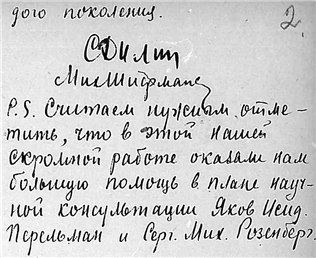 дого поколения. 2.
С. Юилин
Мих Шифман
P.S. Считаем нужным отме-
тить, что в этой нашей
скромной работе оказали нам
большую помощь в плане науч-
ной консультации Яков Исид.
Перельман и Серг. Мих. Розенберг.